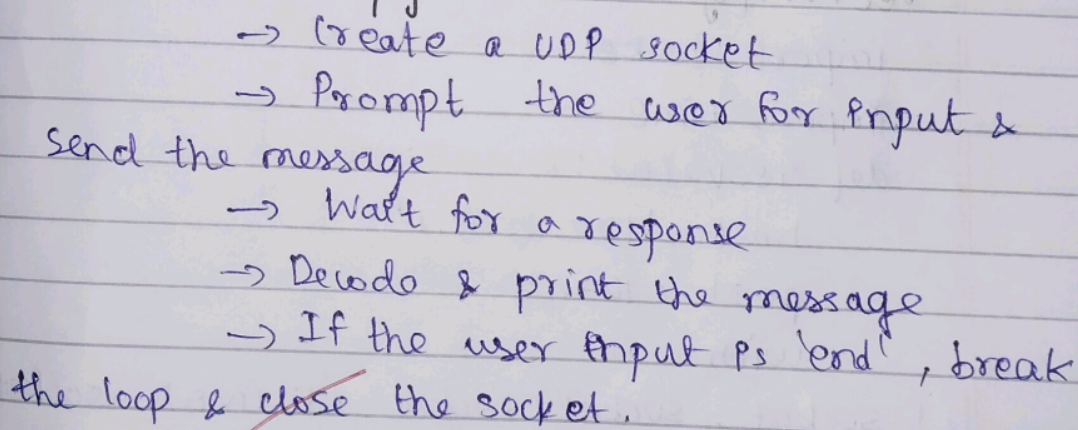 → Create a UDP socket
→ Prompt the user for input &
send the message
→ Wait for a response
→ Decode & print the message
→ If the user input is 'end', break
the loop & close the socket.